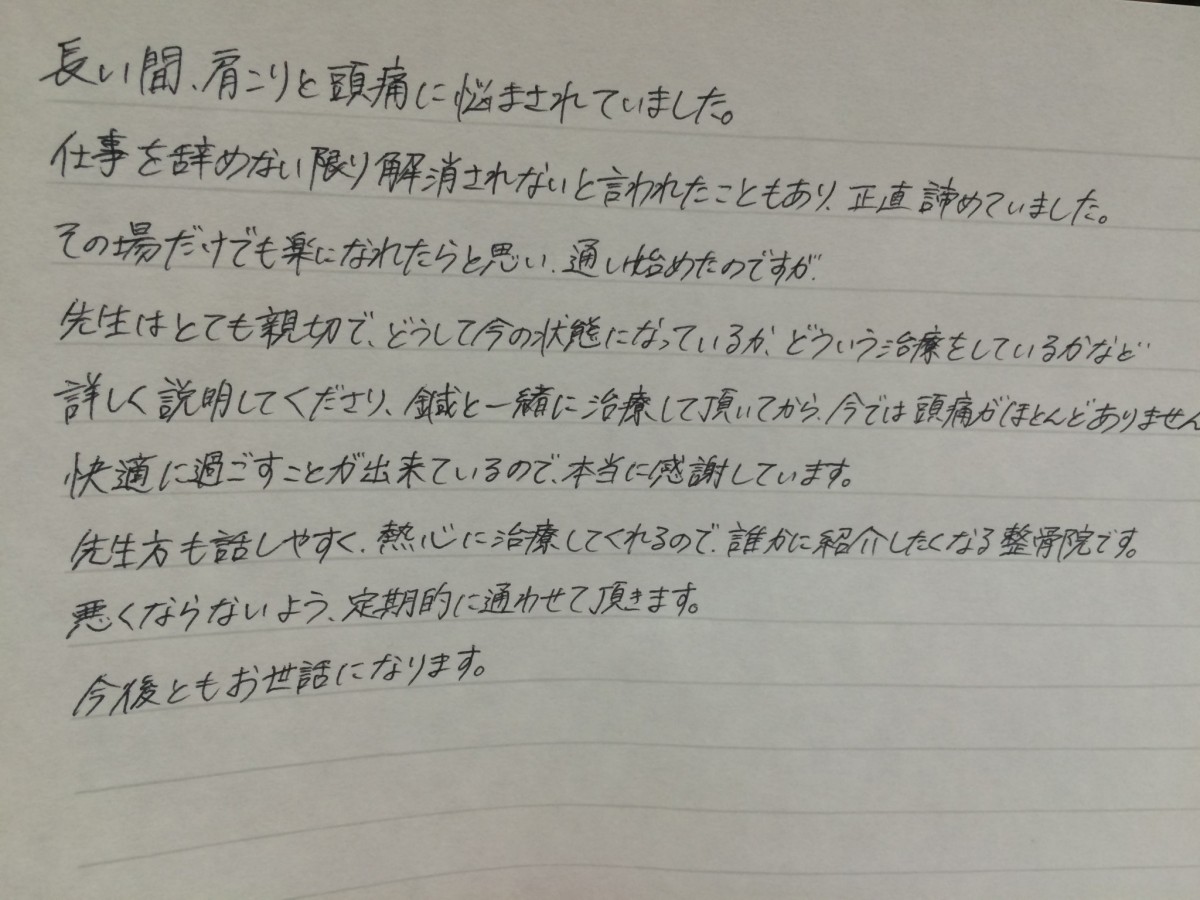 長い間、肩こりと頭痛に悩まされていました。
仕事を辞めない限り解消されないと言われたこともあり、正直諦めていました。
その場だけでも楽になれたらと思い、通い始めたのですが、
先生はとても親切で、どうして今の状態になっているか、どういう治療をしているかなど
詳しく説明してくださり、鍼と一緒に治療して頂いてから、今では頭痛がほとんどありません
快適に過ごすことが出来ているので、本当に感謝しています。
先生方も話しやすく、熱心に治療してくれるので、誰かに紹介したくなる整骨院です。
悪くならないよう、定期的に通わせて頂きます。
今後ともお世話になります。